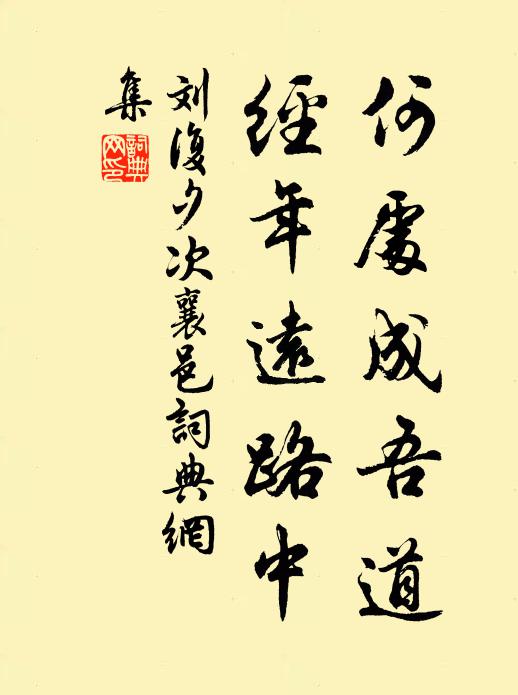 何處成吾道
經年遠路中
刘復夕次襄邑詞典網
集
詞典
网印